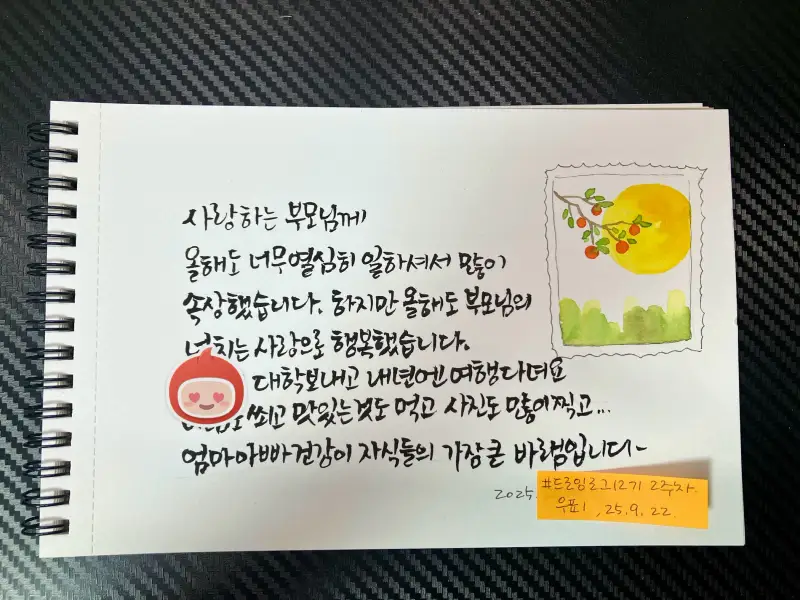 사랑하는 부모님께
올해도 너무 열심히 일하셔서 많이
속상했습니다. 하지만 올해도 부모님의
넘치는 사랑으로 행복했습니다.
대학보내고 내년엔 여행다녀요
쐬고 맛있는것도 먹고 사진도 많이찍고...
엄마아빠건강이 자식들의 가장큰 바램입니다~
2025.
#드로잉로그12기 2주차.
우표1, 25.9.22.